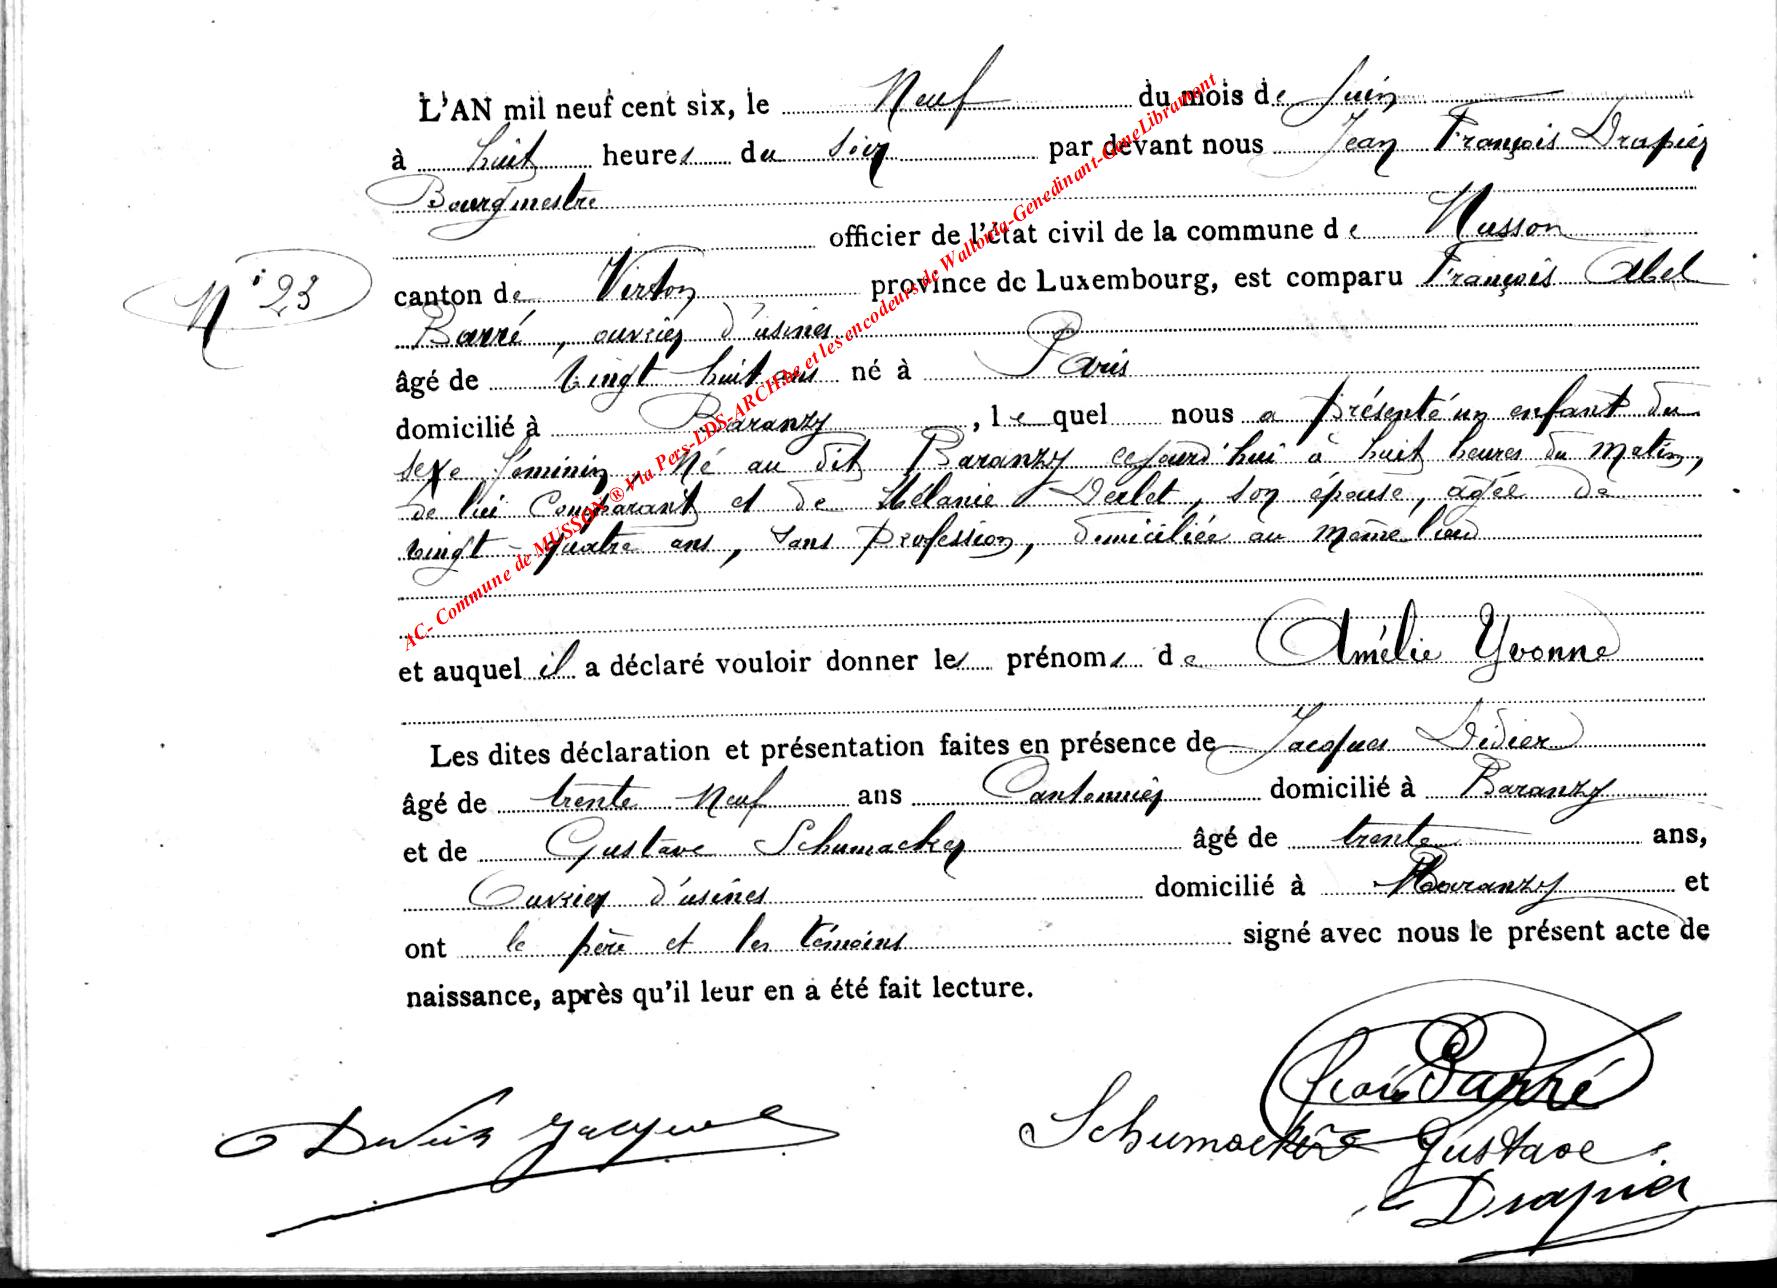 L'AN mil neuf cent six, le Neuf du mois de Juin
à huit heures du soir par devant nous Jean François Drapier
Bourgmestre
officier de l'état civil de la commune de Musson
N° 23
canton de Virton province de Luxembourg, est comparu François Abel
Barré, ouvrier d'usines
âgé de vingt huit ans né à Paris
domicilié à Baranzy, lequel nous a présenté un enfant du
sexe féminin, Né au dit Baranzy cejourd'hui à huit heures du matin,
de lui Comparant et de Mélanie Derlet, son épouse, agée de
vingt-quatre ans, sans profession, domiciliée au même lieu
et auquel il a déclaré vouloir donner les prénoms de Amélie Yvonne
Les dites déclaration et présentation faites en présence de Jacques Didier
âgé de trente Neuf ans Cantonnier domicilié à Baranzy
et de Gustave Schumacker âgé de trente ans,
Ouvrier d'usines domicilié à Baranzy et
ont le père et les témoins signé avec nous le présent acte de
naissance, après qu'il leur en a été fait lecture.
Barré
Jacques
Schumacker Gustave
Drapier
AC- Commune de MUSSON ® Via Pers-LDS-ARCH.be et les encodeurs de Wallonia-Genedinant-GeneLibramont